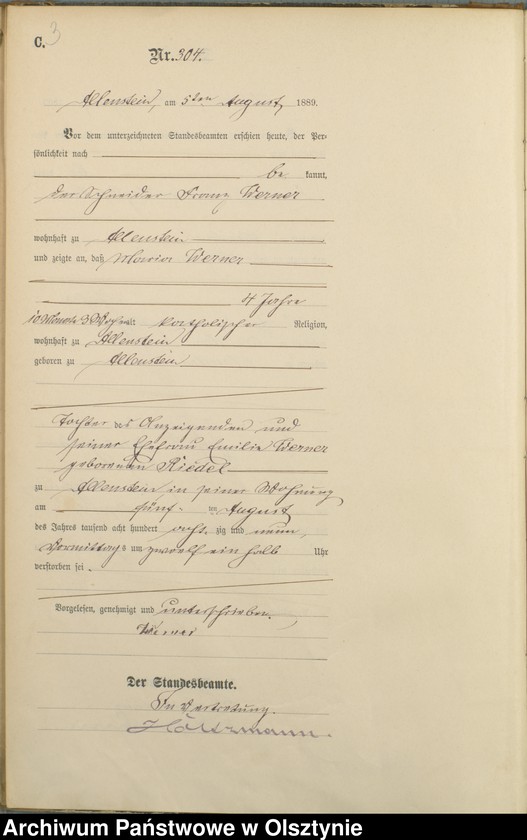 C. 3
Nr. 304.
Allenstein, am 5ten August 1889.
Vor dem unterzeichneten Standesbeamten erschien heute, der Per-
sönlichkeit nach
be kannt,
der Schneider Franz Werner
wohnhaft zu Allenstein
und zeigte an, daß Maria Werner
4 Jahre
10 Monate 3 alt katholischer Religion,
wohnhaft zu Allenstein
geboren zu Allenstein
Tochter des Anzeigenden und
seiner Ehefrau Emilie Werner
geborenen Riedel
zu Allenstein in seiner Wohnung
am fünf ten August
des Jahres tausend acht hundert acht zig und neun,
Vormittags um zwoelf ein halb Uhr
verstorben sei.
Vorgelesen, genehmigt und unterschrieben.
Werner
Der Standesbeamte.
In Vertretung.
Holtzmann.
Archiwum Państwowe w Olsztynie